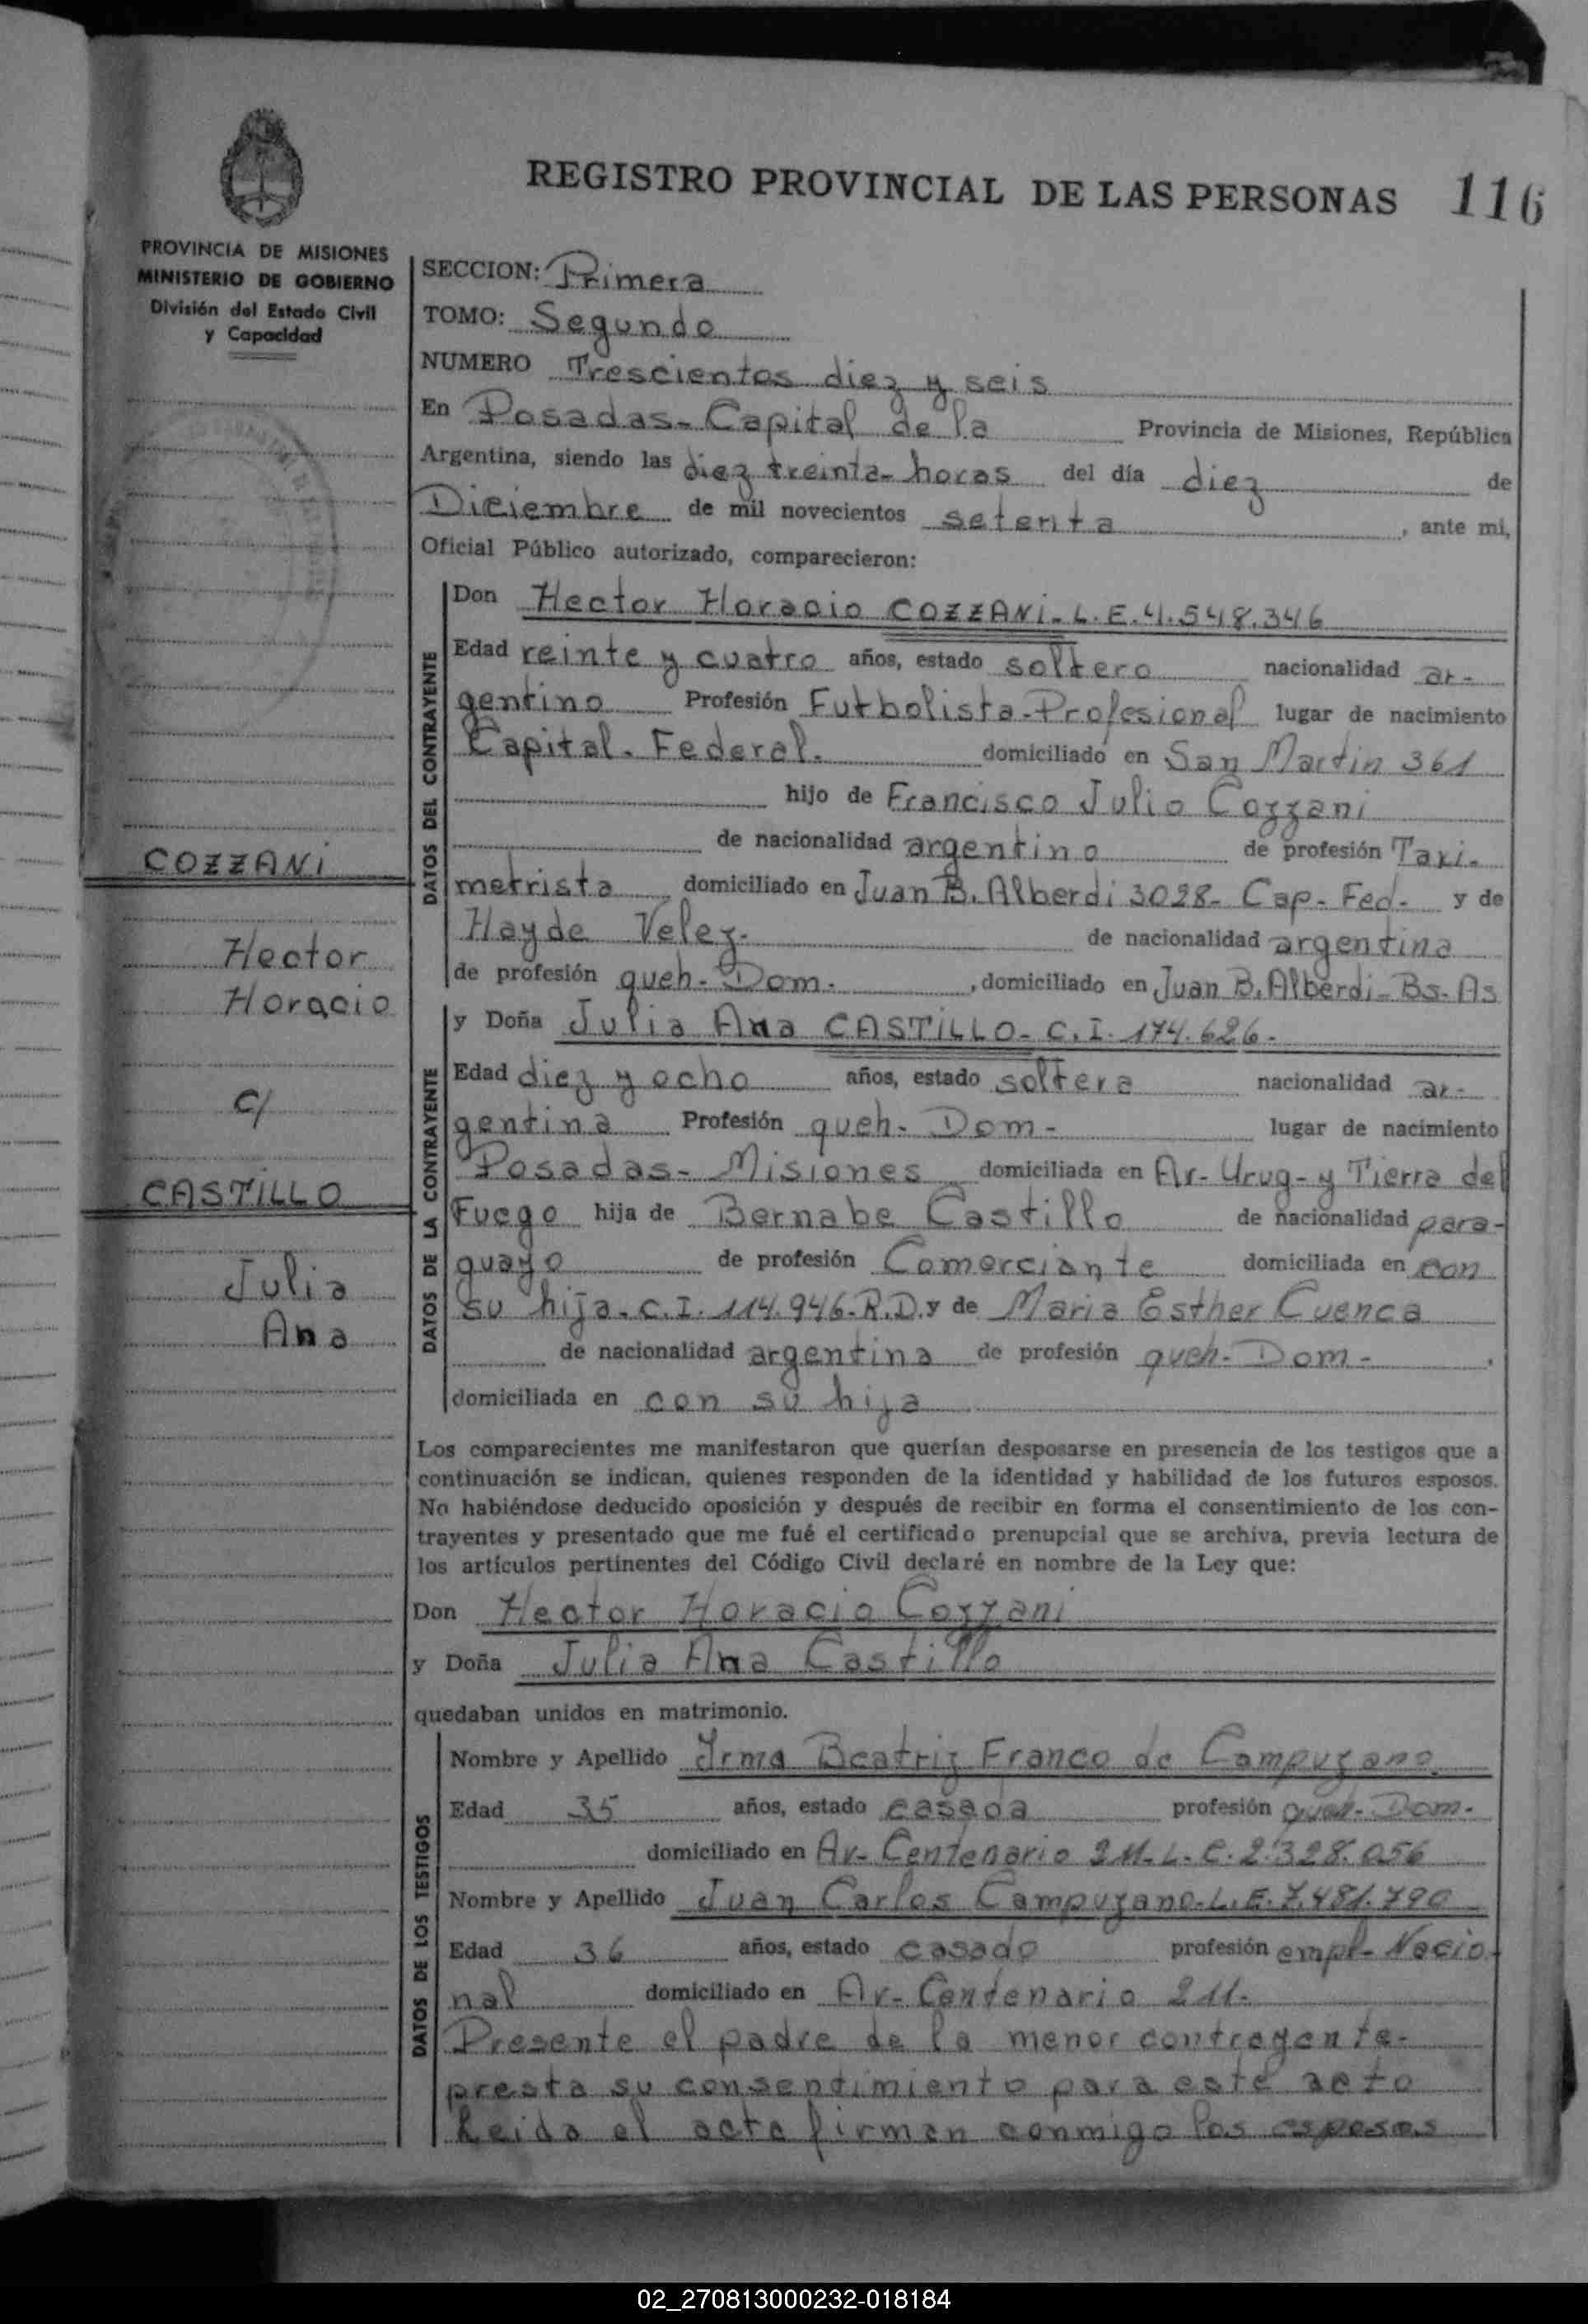 REGISTRO PROVINCIAL DE LAS PERSONAS 116
PROVINCIA DE MISIONES
MINISTERIO DE GOBIERNO
División del Estado Civil
y Capacidad
SECCION: Primera
TOMO: Segundo
NUMERO Trescientos diez y seis
En Posadas- Capital de la Provincia de Misiones, República
Argentina, siendo las diez treinta- horas del día diez de
Diciembre de mil novecientos setenta, ante mi,
Oficial Público autorizado, comparecieron:
DATOS DEL CONTRAYENTE
Don Hector Horacio COZZANI- L.E. 4.548.346
Edad veinte y cuatro años, estado soltero nacionalidad ar-
gentino Profesión Futbolista-Profesional lugar de nacimiento
Capital- Federal. domiciliado en San Martin 361
hijo de Francisco Julio Cozzani
de nacionalidad argentino de profesión Taxi-
metrista domiciliado en Juan B. Alberdi 3028- Cap- Fed- y de
Hayde Velez- de nacionalidad argentina
de profesión queh- Dom-, domiciliado en Juan B. Alberdi- Bs. As
COZZANI
Hector
Horacio
c/
CASTILLO
Julia
Ana
DATOS DE LA CONTRAYENTE
y Doña Julia Ana CASTILLO- C.I. 174.626-
Edad diez y ocho años, estado soltera nacionalidad ar-
gentina Profesión queh- Dom- lugar de nacimiento
Posadas- Misiones domiciliada en Av- Urug- y Tierra del
Fuego hija de Bernabe Castillo de nacionalidad para-
guayo de profesión Comerciante domiciliada en con
su hija- C.I. 114.946-R.D. y de Maria Esther Cuenca
de nacionalidad argentina de profesión queh- Dom-,
domiciliada en con su hija
Los comparecientes me manifestaron que querían desposarse en presencia de los testigos que a
continuación se indican, quienes responden de la identidad y habilidad de los futuros esposos.
No habiéndose deducido oposición y después de recibir en forma el consentimiento de los con-
trayentes y presentado que me fué el certificado prenupcial que se archiva, previa lectura de
los artículos pertinentes del Código Civil declaré en nombre de la Ley que:
Don Hector Horacio Cozzani
y Doña Julia Ana Castillo
quedaban unidos en matrimonio.
DATOS DE LOS TESTIGOS
Nombre y Apellido Irma Beatriz Franco de Campuzano
Edad 35 años, estado casada profesión queh- Dom-
domiciliado en Av- Centenario 211- L.C. 2.328.056
Nombre y Apellido Juan Carlos Campuzano- L.E. 7.481.790
Edad 36 años, estado casado profesión empl- Nacio
nal domiciliado en Av- Centenario 211-
Presente el padre de la menor contrayente-
presta su consentimiento para este acto
Leida el acta firman conmigo los esposos
02_270813000232-018184